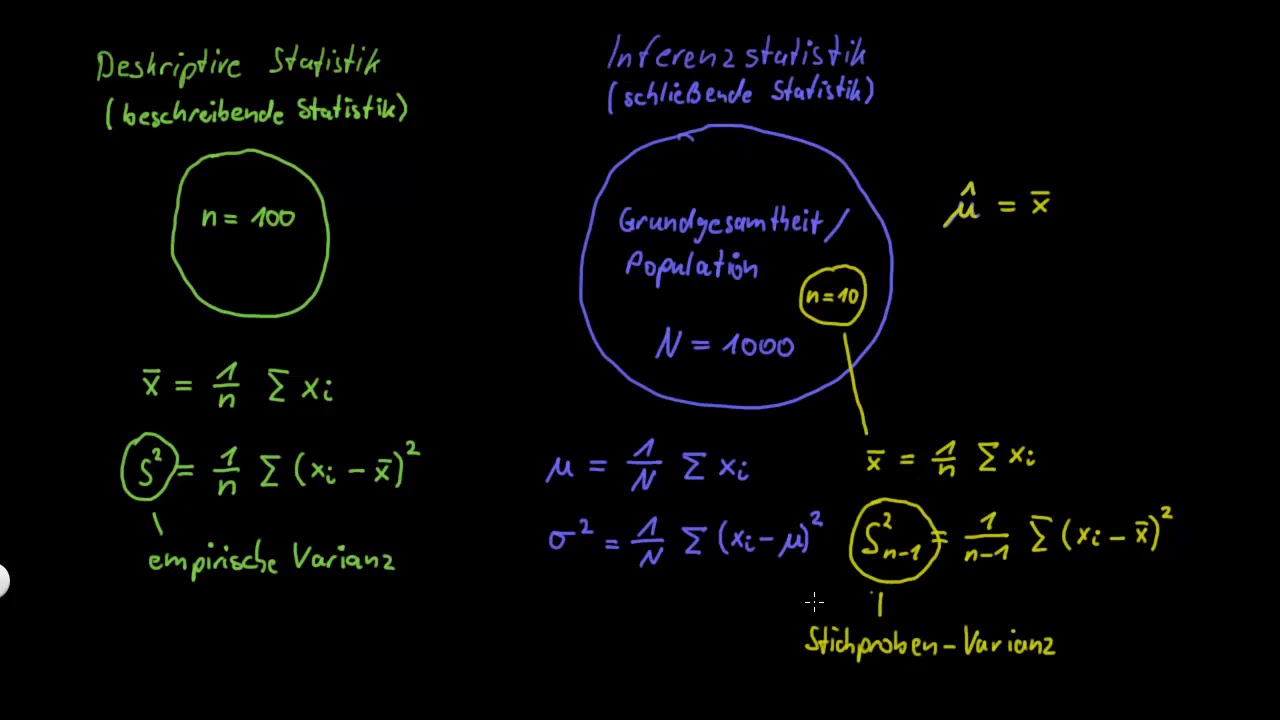 Deskriptive Statistik
(beschreibende Statistik)
n = 100
x̄ = 1/n Σ xi
S² = 1/n Σ (xi - x̄)²
empirische Varianz
Inferenzstatistik
(schließende Statistik)
Grundgesamtheit/
Population
n = 10
N = 1000
μ = 1/N Σ xi
σ² = 1/N Σ (xi - μ)²
μ̂ = x̄
x̄ = 1/n Σ xi
S²n-1 = 1/n-1 Σ (xi - x̄)²
Stichproben-Varianz